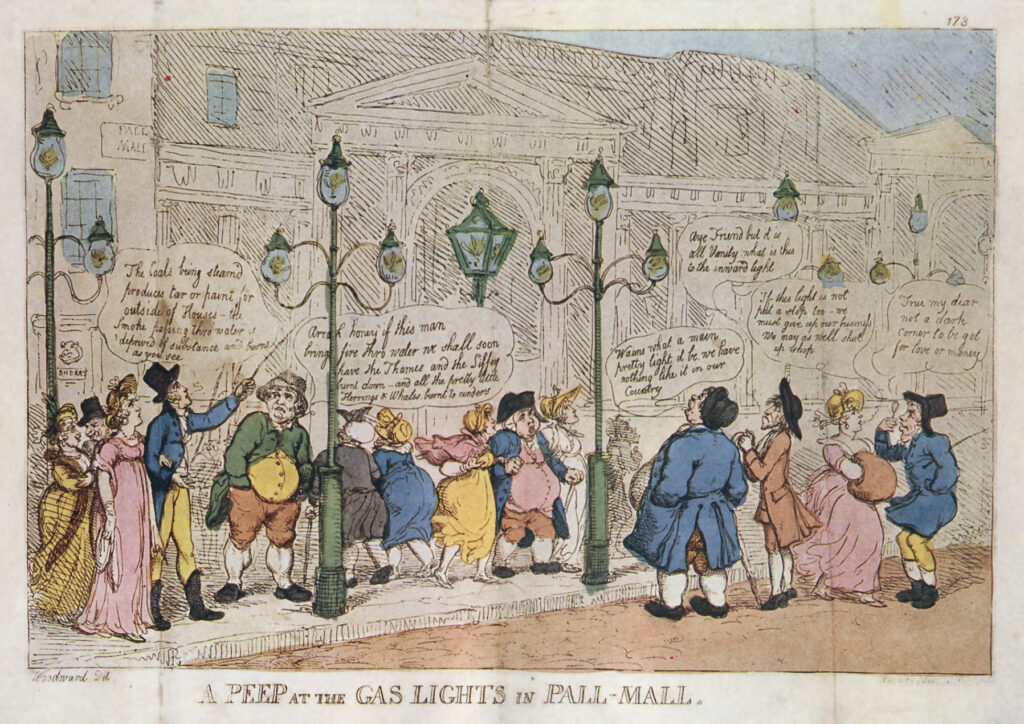 173
PALL
MALL
The Coals being steamd
produces tar or paint for
outside of Houses – the
Smoke passing thro water is
deprived of substance and burns
as you see
Arrah honey if this man
bring fire thro water we shall soon
have the Thames and the Liffey
burnt down – and all the pretty little
Herrings & Whales burnt to cinders
Wauns what a main
pretty light it be we have
nothing like it in our
Country
Aye Friend but it is
all Vanity what is this
to the inward light
If this light is not
put a stop too – we
must give up our business
we may as well shut
up shop
True my dear
not a dark
corner to be got
for love or money
Woodward Del
A PEEP AT THE GAS LIGHTS IN PALL-MALL.